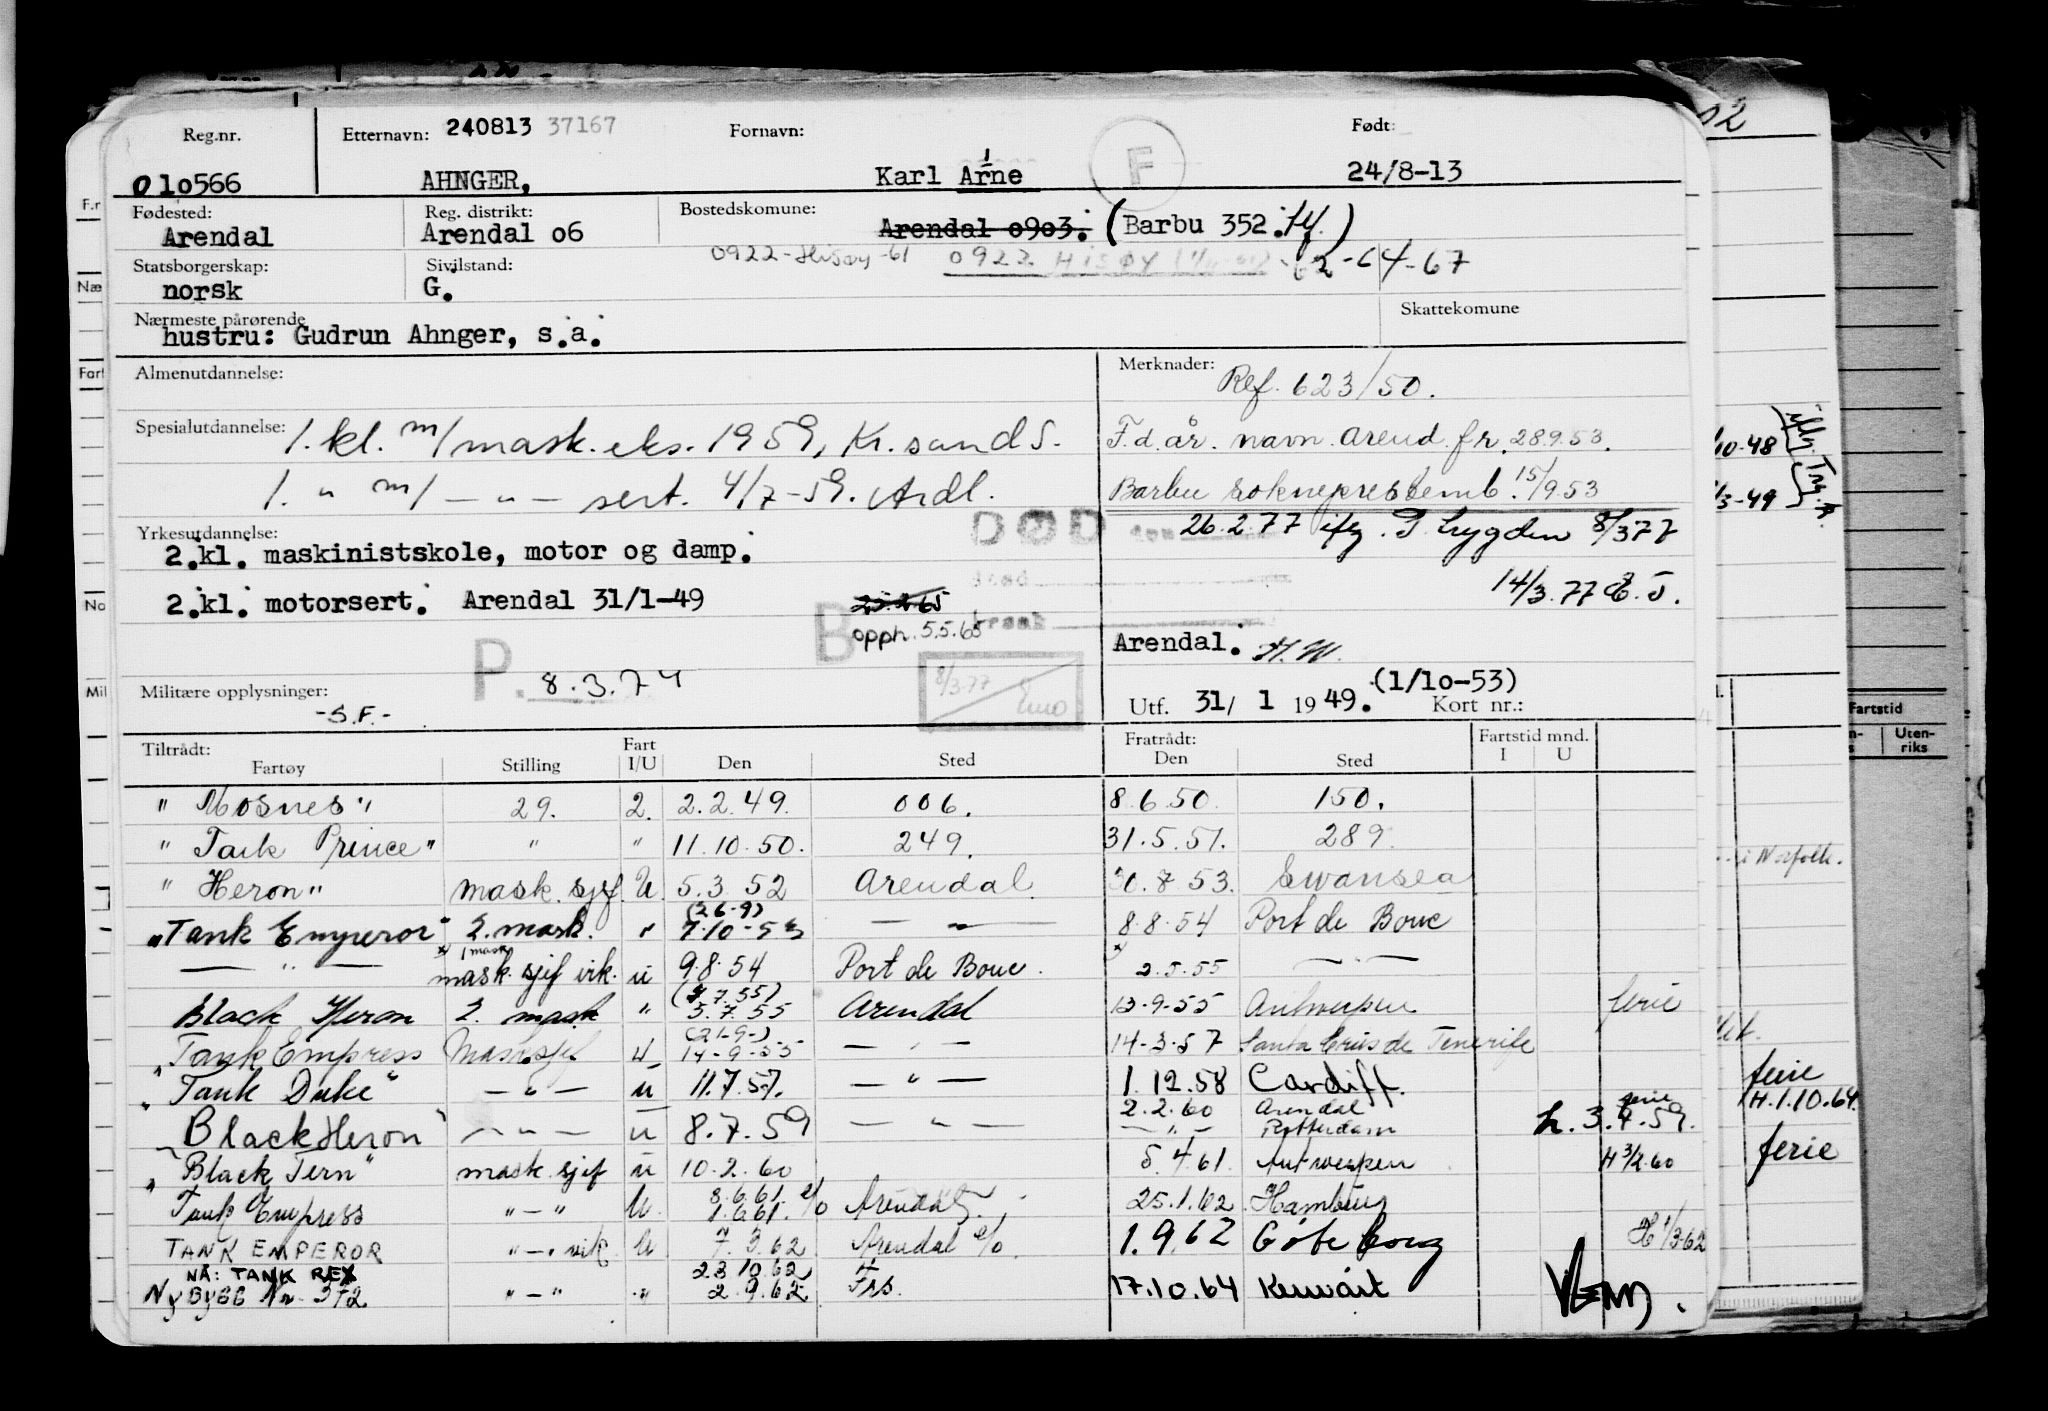 Reg.nr. Etternavn: 240813 37167 Fornavn: Født:
010566 AHNGER, Karl Arne F 24/8-13
Fødested: Reg. distrikt: Bostedskomune:
Arendal Arendal o6 Arendal o9o3. (Barbu 352.
0922-Hisøy-61 0922 HISØY 62-64-67
Statsborgerskap: Sivilstand:
norsk G.
Nærmeste pårørende Skattekomune
hustru: Gudrun Ahnger, s.a.
Almenutdannelse: Merknader: Ref. 623/50.
Spesialutdannelse: 1. kl. m/mask. eks. 1959, Kr.sand S. F.d.år. navn. Arend. fr. 28.9.53.
1. " m/ — " — sert. 4/7-59. Ardl. Barbu sokneprestemb. 15/9.53
DØD 26.2.77 ifg. T. Lygden 8/3 77
Yrkesutdannelse:
2.kl. maskinistskole, motor og damp.
14/3.77
2.kl. motorsert. Arendal 31/1-49 25.2.65
B opph. 5.5.65
Arendal. H.W.
P. 8.3.74 8/3-77
Militære opplysninger: -S.F.-
(1/1o-53)
Utf. 31/ 1 1949. Kort nr.:
Tiltrådt: Fratrådt: Fartstid mnd.
Fartøy Stilling Fart I/U Den Sted Den Sted I U
" Mosnes " 29. 2. 2.2.49. 006. 8.6.50. 150.
" Tank Prince " " " 11.10.50. 249. 31.5.51. 289.
" Heron " mask.sjef. U. 5.3.52 Arendal 30.8.53. Swansea
(26-9)
"Tank Emperor" 2. mask. " 7.10-53 — " — 8.8.54 Port de Bouc
x) 1 mask
— " — mask.sjef vik. u 9.8.54 Port de Bouc. 2.5.55 — " —
Black Heron 2. mask " 5.7.55 Arendal 13-9-55 Antwerpen ferie
(21-9-)
"Tank Empress Mask.sjef U 14-9-55 — " — 14-3-57 Santa Crus de Tenerife
"Tank Duke" — " — u 11.7.57. — " — 1.12.58 Cardiff.
2.2.60 Arendal ferie
"Black Heron" — " — u 8.7.59 — " — — " — Rotterdam
"Black Tern" mask.sjef u 10.2.60 5.4.61. Antwerpen H 3/2.60
8.6.61.
Tank Empress " — " U. 1.6.61. Arendal 25.1.62 Hamburg
TANK EMPEROR " — " vik. U 7.3.62 Arendal 1.9.62 Göteborg H 1/3.62
NÅ: TANK REX 23.10.62
Nybygg Nr. 372 " — " " 2.9.62 17.10.64
Fartstid
Uten-
riks
i Norfolk.
ferie
H.1.10.64.
ferie